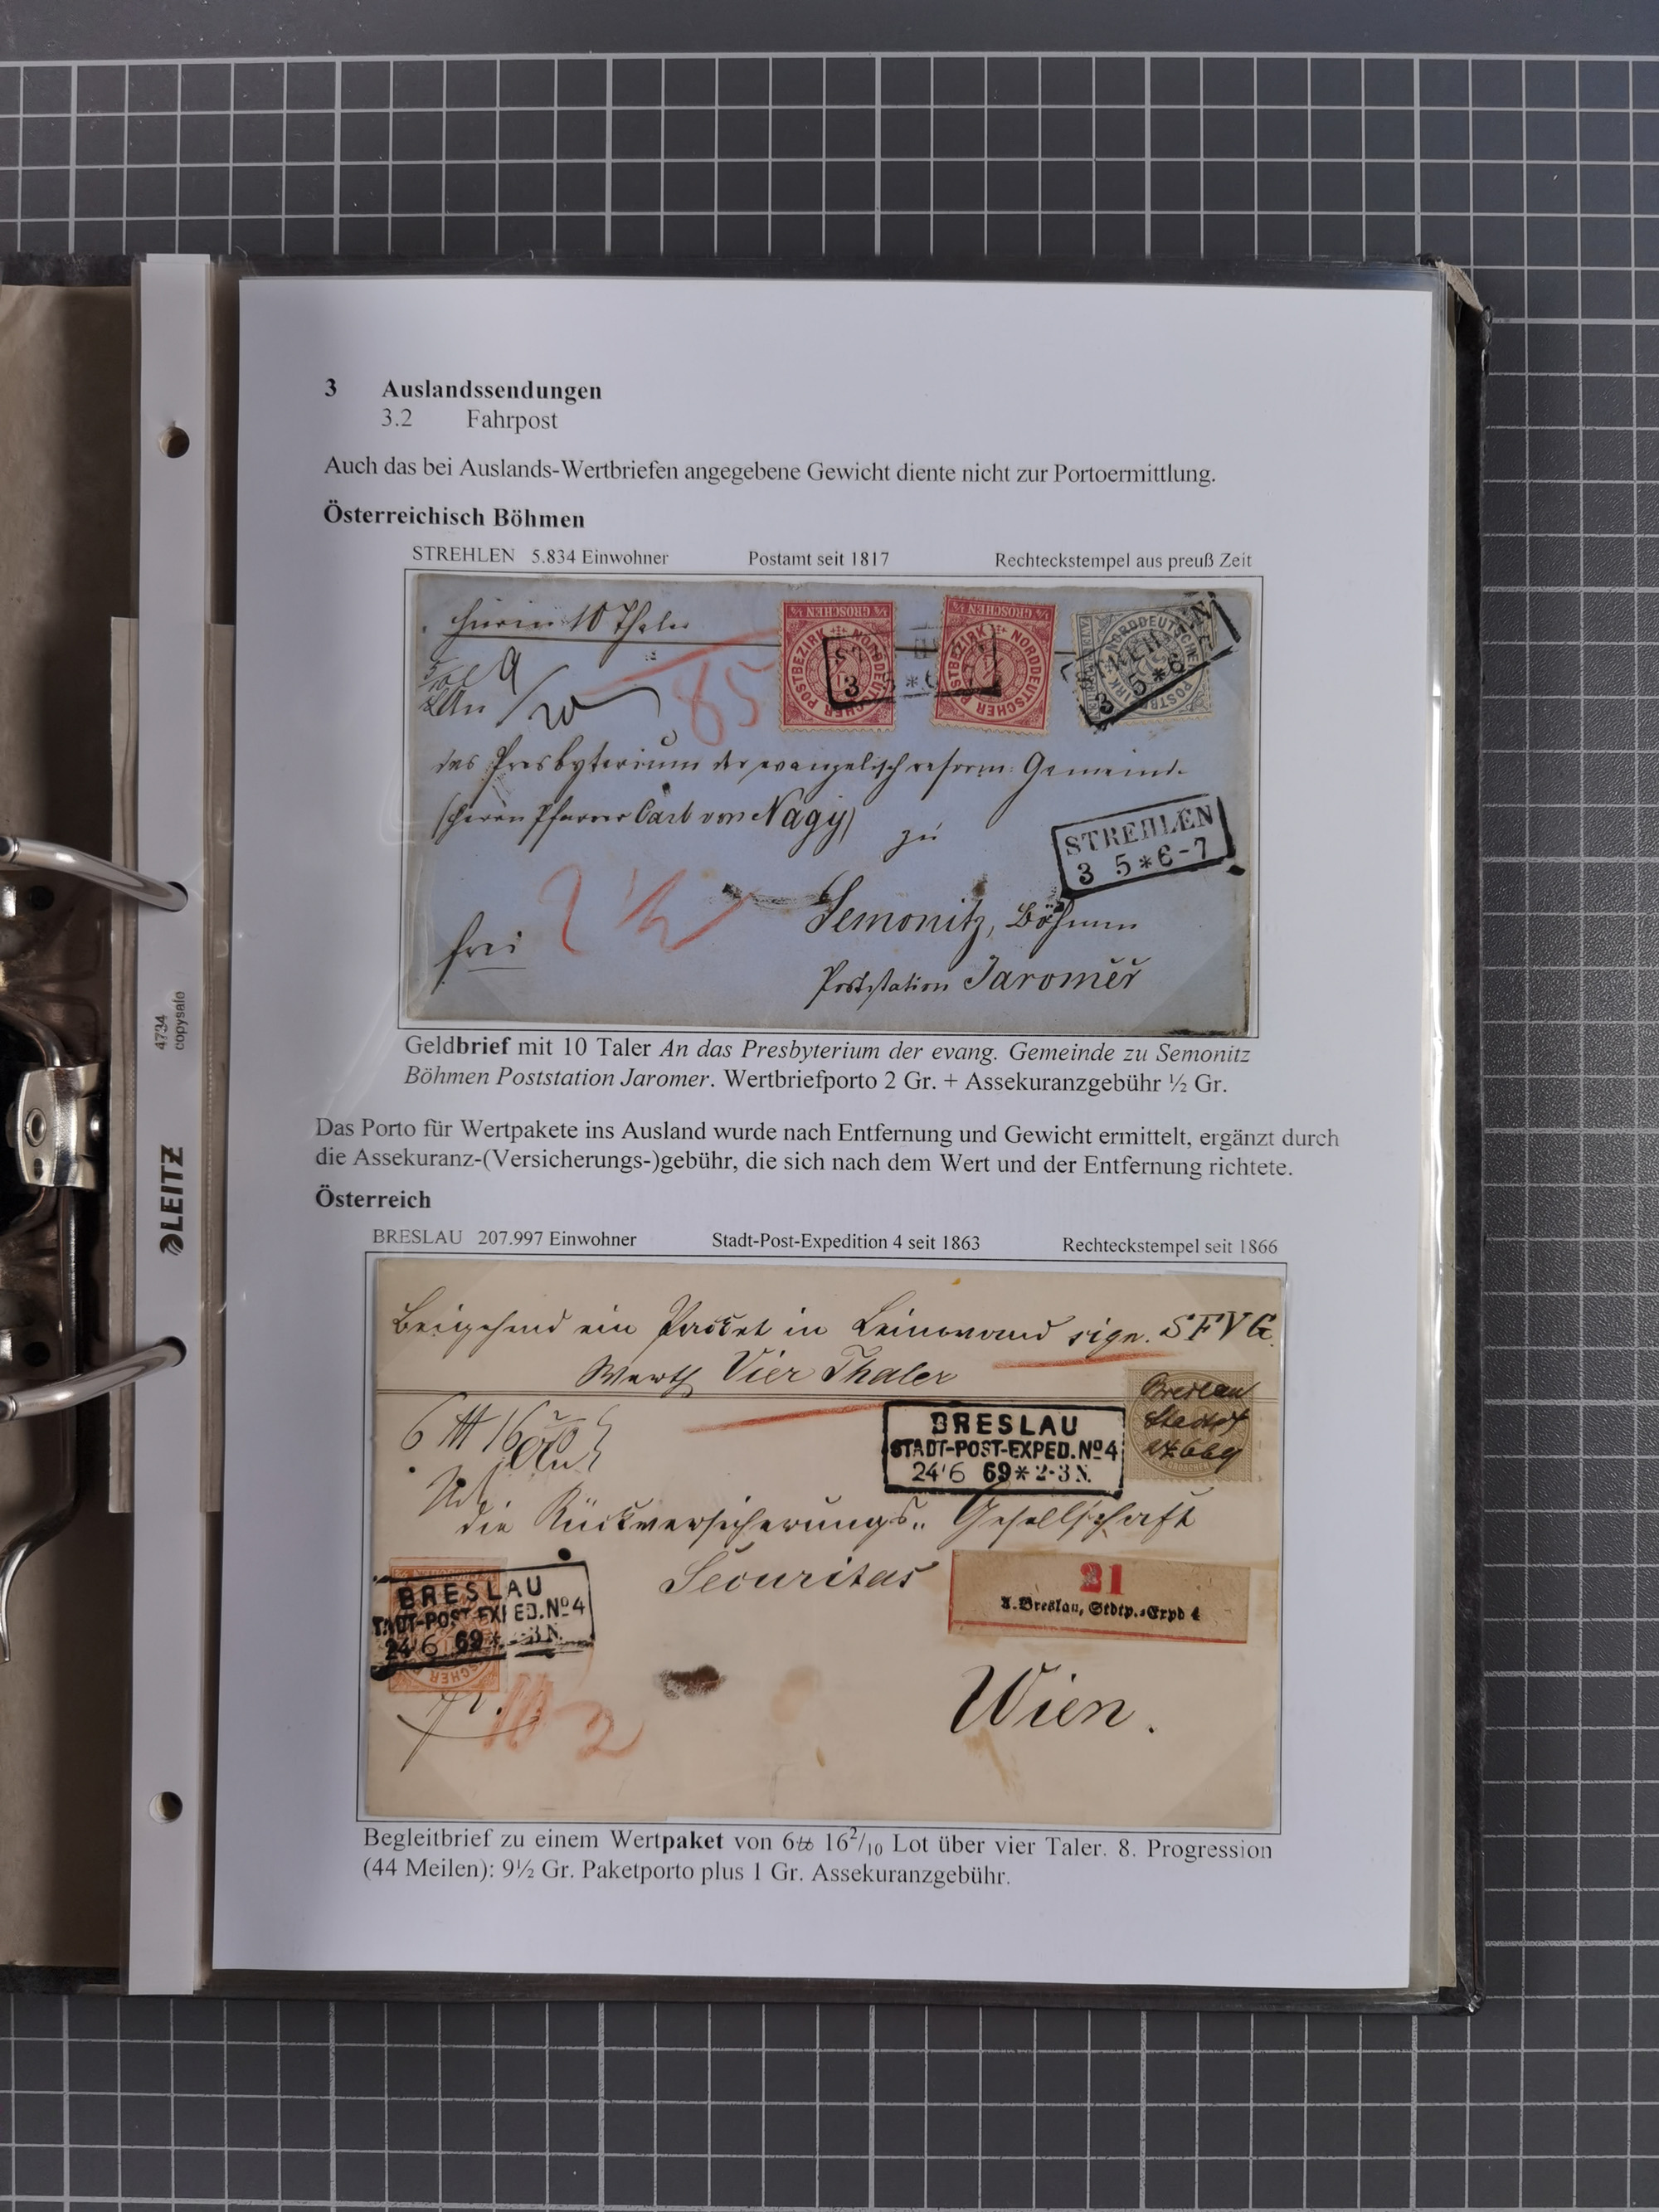 3 Auslandssendungen
3.2 Fahrpost
Auch das bei Auslands-Wertbriefen angegebene Gewicht diente nicht zur Portoermittlung.
Österreichisch Böhmen
STREHLEN 5.834 Einwohner Postamt seit 1817 Rechteckstempel aus preuß Zeit
hierin 10 Thaler
GROSCHEN
NORDDEUTSCHER POSTBEZIRK
GROSCHEN
NORDDEUTSCHER POSTBEZIRK
85
An
das Presbyterium der evangelisch reform: Gemeinde
(Herrn Pfarrer Carl von Nagy)
zu
STREHLEN
3 5 * 6-7
2 ½
Semonitz, Böhmen
frei
Poststation Jaroměř
Geldbrief mit 10 Taler An das Presbyterium der evang. Gemeinde zu Semonitz
Böhmen Poststation Jaromer. Wertbriefporto 2 Gr. + Assekuranzgebühr ½ Gr.
Das Porto für Wertpakete ins Ausland wurde nach Entfernung und Gewicht ermittelt, ergänzt durch
die Assekuranz-(Versicherungs-)gebühr, die sich nach dem Wert und der Entfernung richtete.
Österreich
BRESLAU 207.997 Einwohner Stadt-Post-Expedition 4 seit 1863 Rechteckstempel seit 1866
Beigehend ein Packet in Leinewand sign. SFVG.
Werth Vier Thaler
Breslau
BRESLAU
STADT-POST-EXPED. No 4
24 6 69 * 2-3 N.
An
die Rückversicherungs„ Gesellschaft
Securitas
BRESLAU
STADT-POST-EXPED. No 4
24 6 69 * 2-3 N.
21
A. Breslau, Stdtp.-Expd 4
Wien.
2
Begleitbrief zu einem Wertpaket von 6℔ 16²/₁₀ Lot über vier Taler. 8. Progression
(44 Meilen): 9½ Gr. Paketporto plus 1 Gr. Assekuranzgebühr.
4734
copysafe
LEITZ